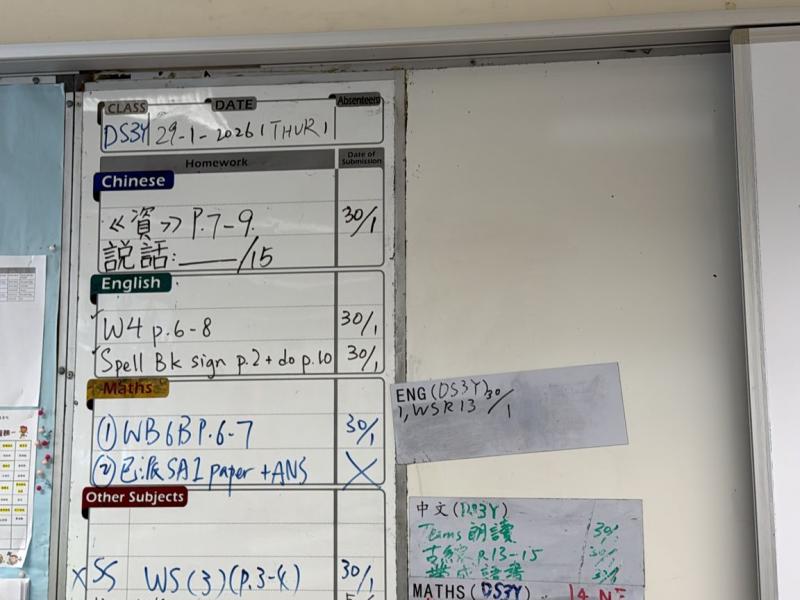 CLASS DATE Absenteers
DS3Y 29-1-2026 (THUR)
Homework Date of Submission
Chinese
《資》P.7-9. 30/1
説話:____/15
English
✓W4 p.6-8 30/1
✓Spell Bk sign p.2 + do p.10 30/1
Maths
① WB6B P.6-7 30/1
② 已派 SA1 paper + ANS X
Other Subjects
X SS WS(3)(p.3-4) 30/1
ENG (DS3Y)
1, WS R13 30/1
中文(DS3Y)
Teams 朗讀 30/1
P.13-15
MATHS (DS3Y)